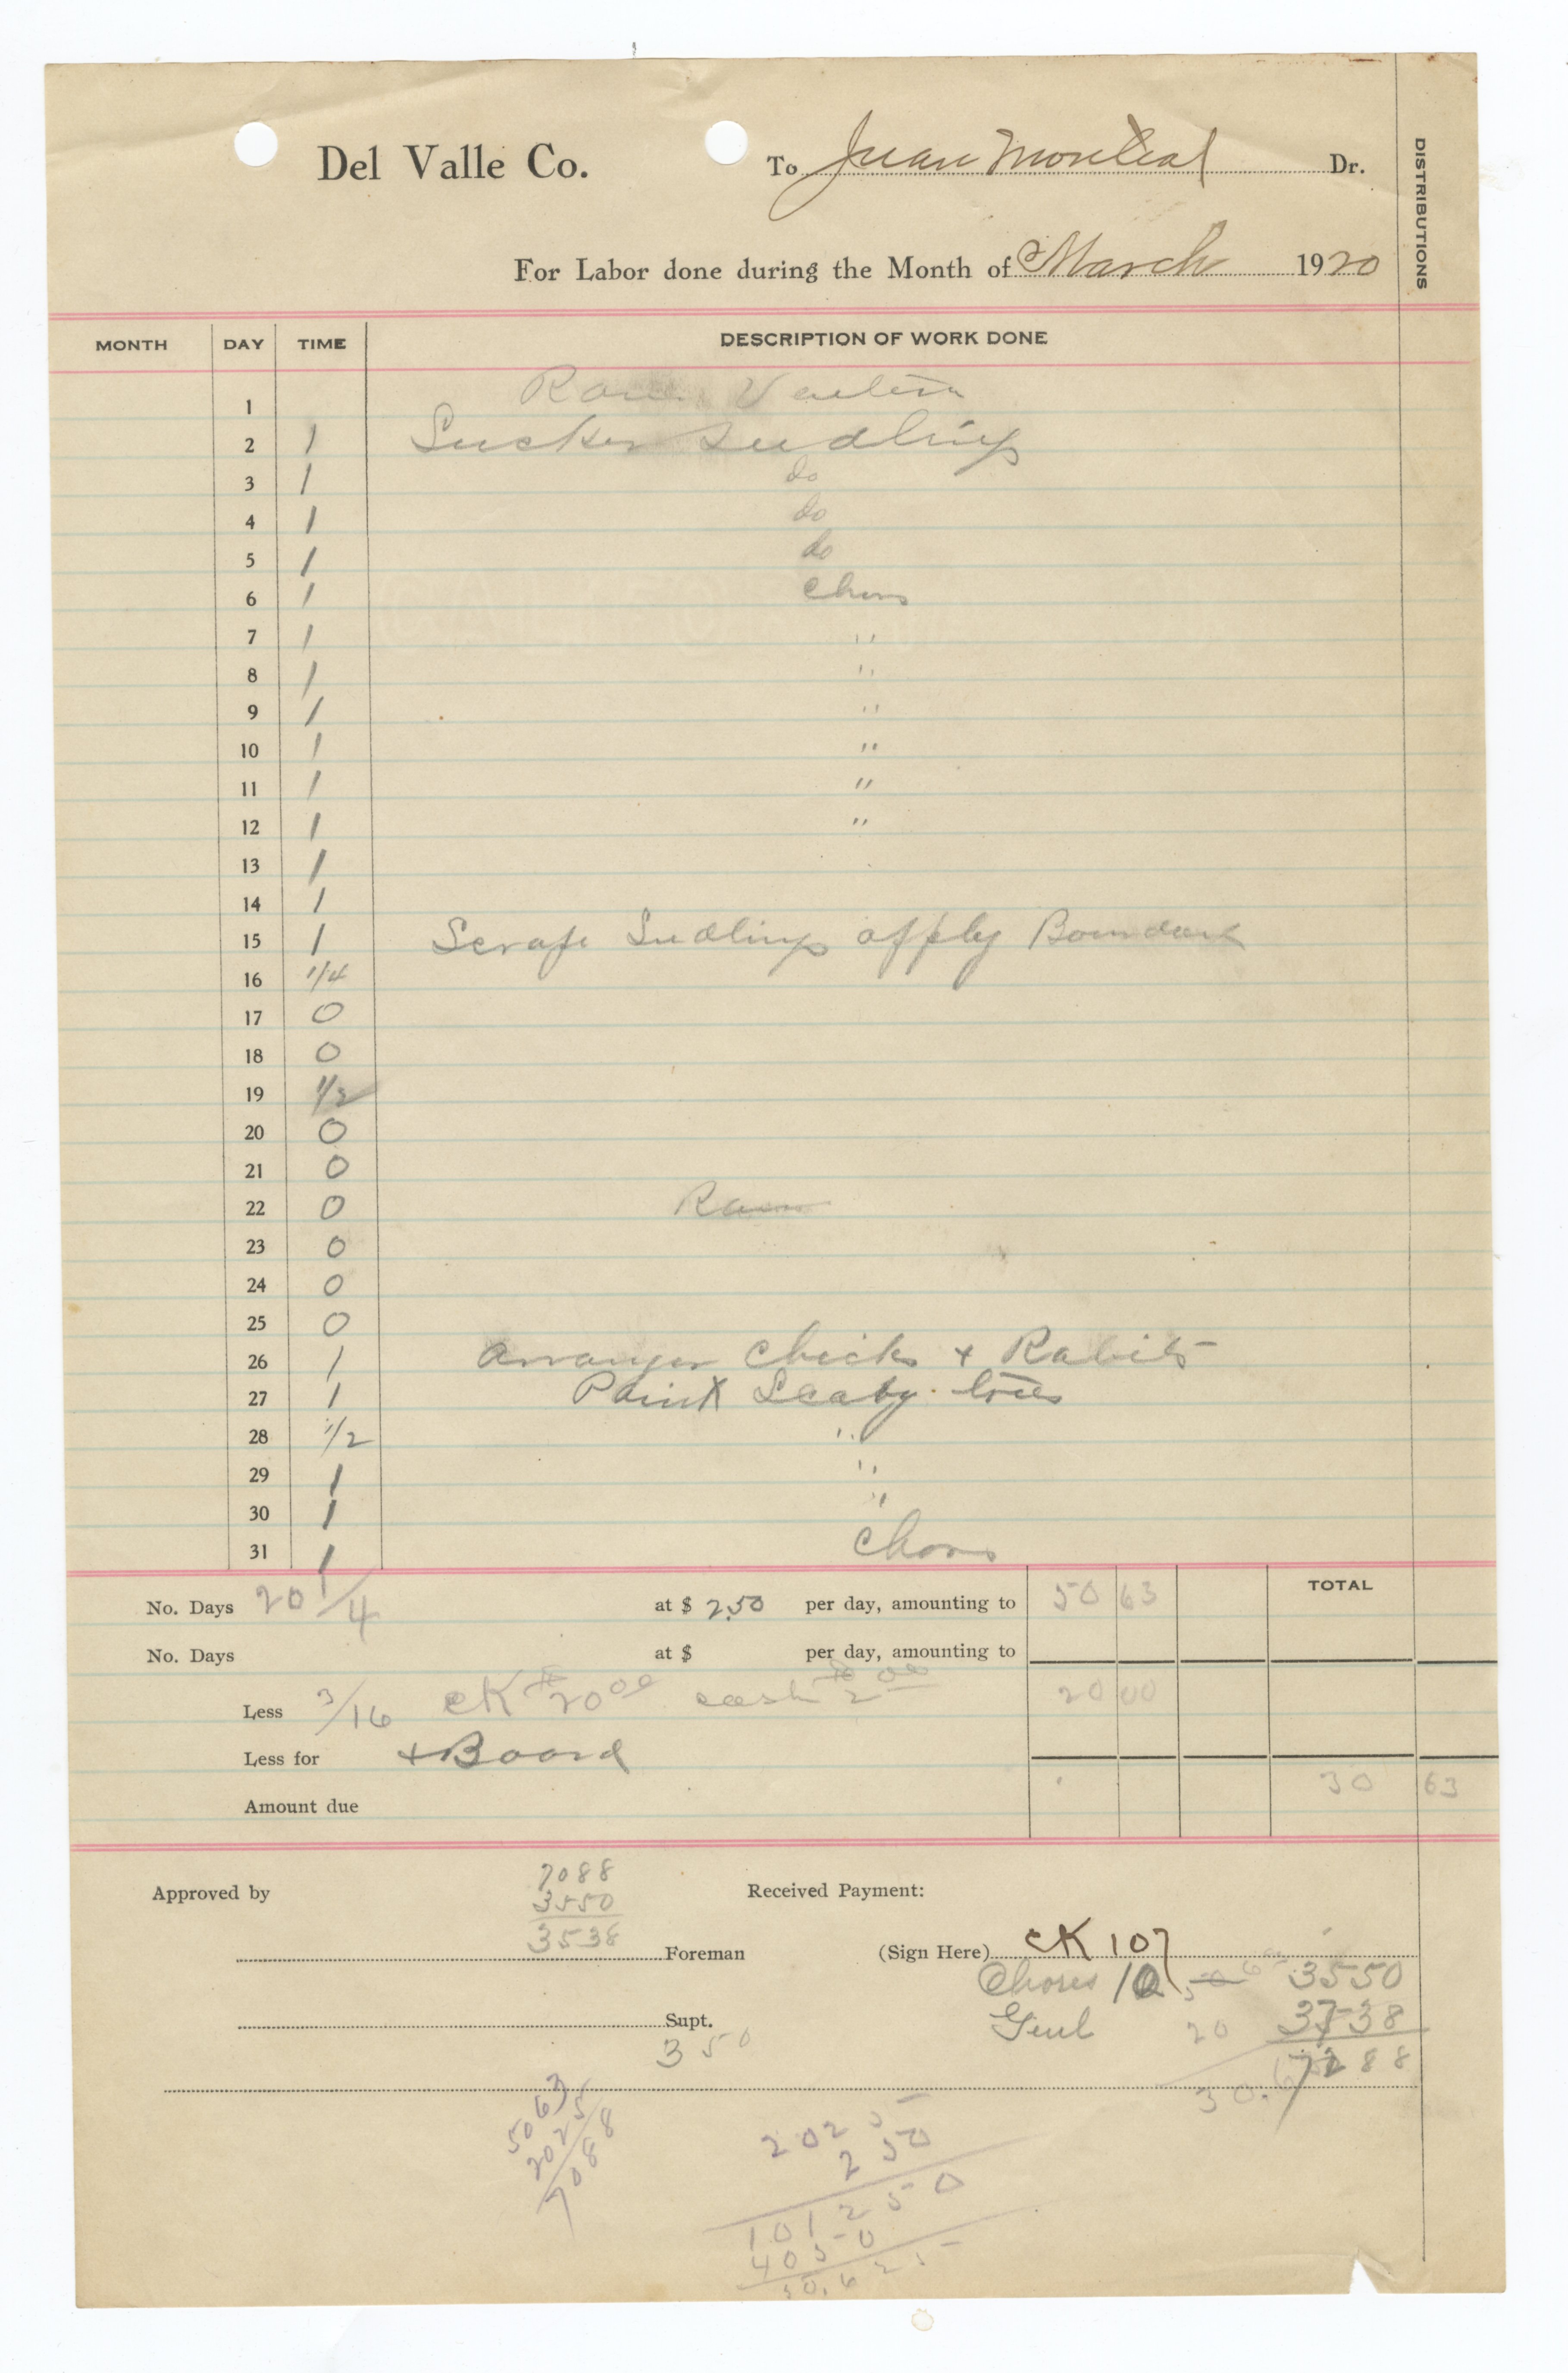 Del Valle Co. To Juan Monreal Dr.
DISTRIBUTIONS
For Labor done during the Month of March 1920
MONTH DAY TIME DESCRIPTION OF WORK DONE
1
2 1 Sucker Seedlings
3 1 do
4 1 do
5 1 do
6 1 Chors
7 1 "
8 1 "
9 1 "
10 1 "
11 1 "
12 1 "
13 1
14 1
15 1 Scrape Seedlings apply
16 1/4
17 0
18 0
19 1/2
20 0
21 0
22 0 Rain
23 0
24 0
25 0
26 1 Chicks + Rabits
27 1 Paint Scaby trees
28 1/2 "
29 1 "
30 1 "
31 1 Chors
TOTAL
No. Days 20 1/4 at $ 2.50 per day, amounting to 50 63
No. Days at $ per day, amounting to
Less 3/16 CK #20 00 cash #2 00 20 00
Less for + Board
Amount due 30 63
7088
Approved by 3550 Received Payment:
3538 Foreman (Sign Here) CK 107
Chores 10 3550
Supt. Genl 20 3738
350 88
30.6
5063
2025
7088
2025
250
101250
4050
50.625